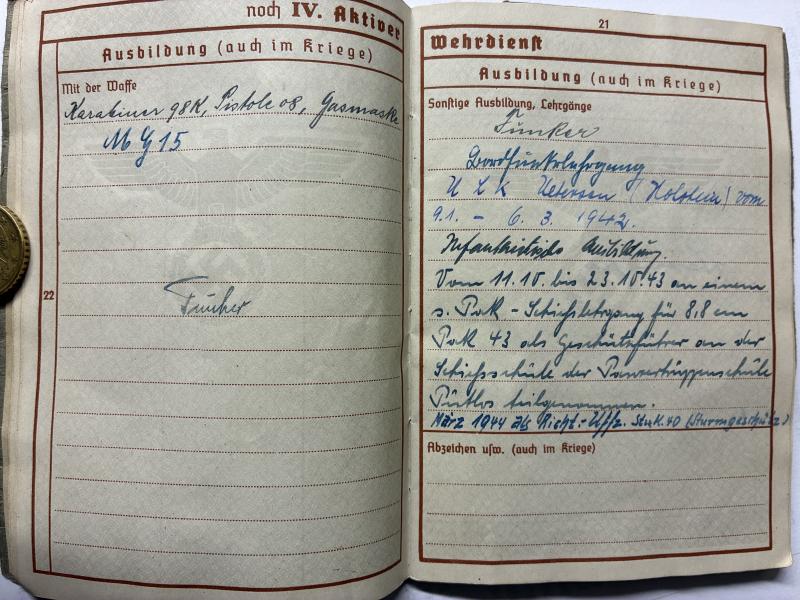 noch IV. Aktiver
Ausbildung (auch im Kriege)
Mit der Waffe
Karabiner 98K, Pistole 08, Gasmaske
MG 15
22
21
Wehrdienst
Ausbildung (auch im Kriege)
Sonstige Ausbildung, Lehrgänge
Funker
Bordfunkerlehrgang
Uetersen (Holstein) vom
9.1. – 6.3. 1942.
Infantristische Ausbildung.
Vom 11.10. bis 23.10.43 an einem
s. Pak – Schießlehrgang für 8,8 cm
Pak 43 als Geschützführer an der
Schießschule der Panzertruppenschule
Putlos teilgenommen.
März 1944 als Richt.-Uffz. Stuk. 40 (Sturmgeschütz)
Abzeichen usw. (auch im Kriege)